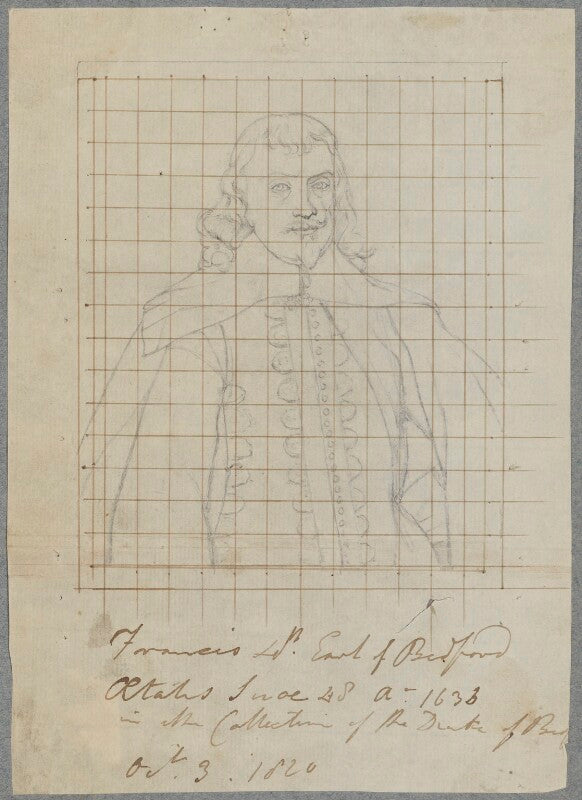 Francis 4th. Earl of Bedford
Ætatis Suae 48 Ao 1636
in the Collection of the Duke of Bed
Oct. 3. 1820